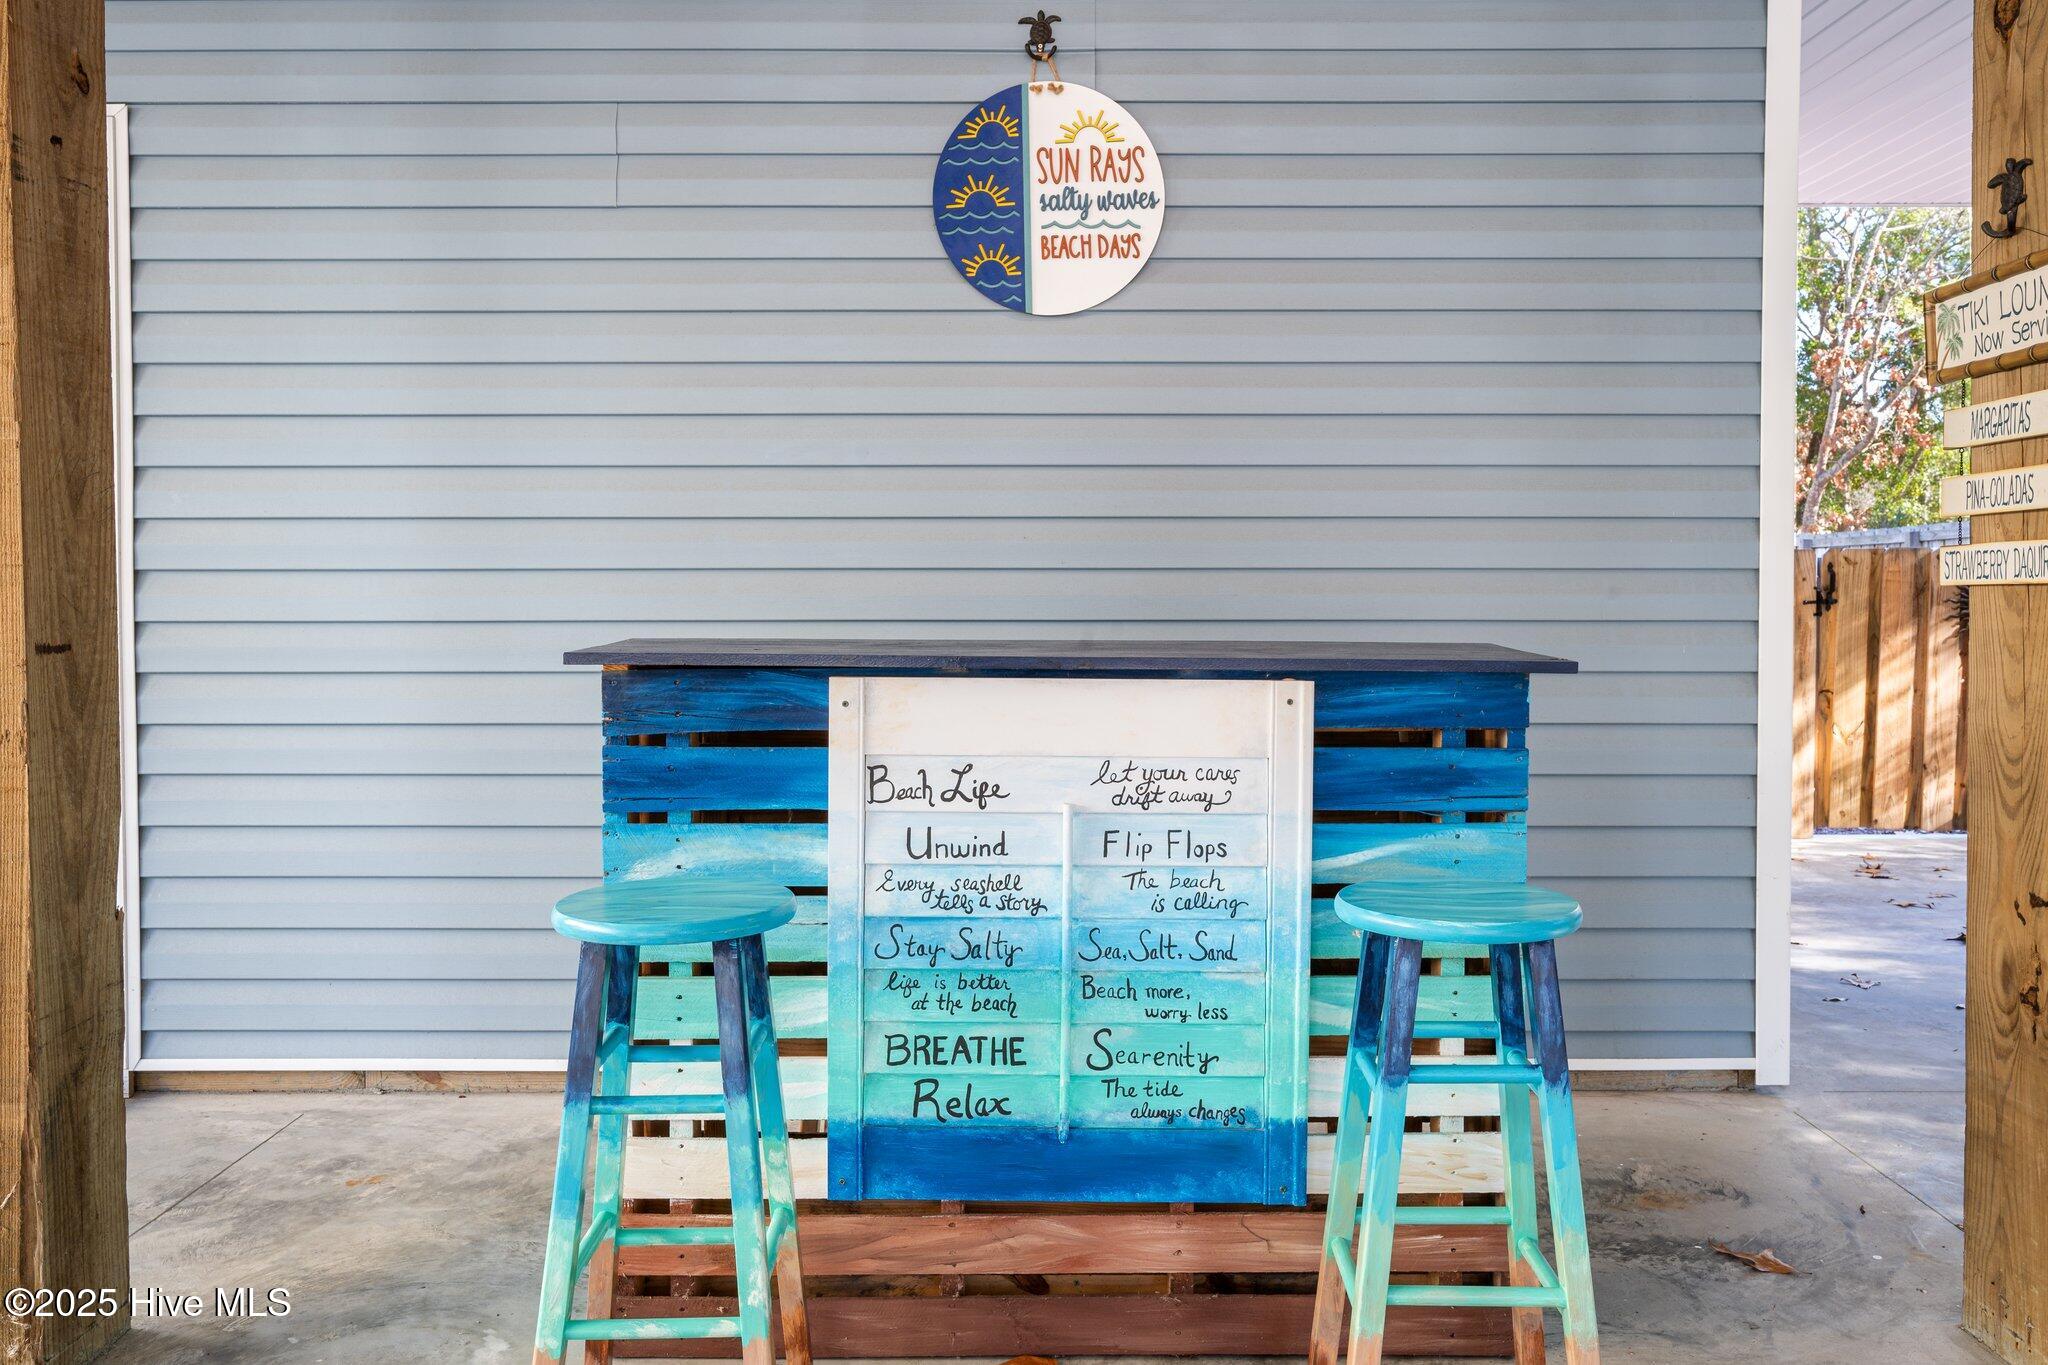 SUN RAYS
salty waves
BEACH DAYS
TIKI LOUN
Now Servi
MARGARITAS
PINA-COLADAS
STRAWBERRY DAQUIR
Beach Life
Unwind
Every seashell
tells a story
Stay Salty
life is better
at the beach
BREATHE
Relax
let your cares
drift away
Flip Flops
The beach
is calling
Sea, Salt, Sand
Beach more,
worry less
Searenity
The tide
always changes
©2025 Hive MLS